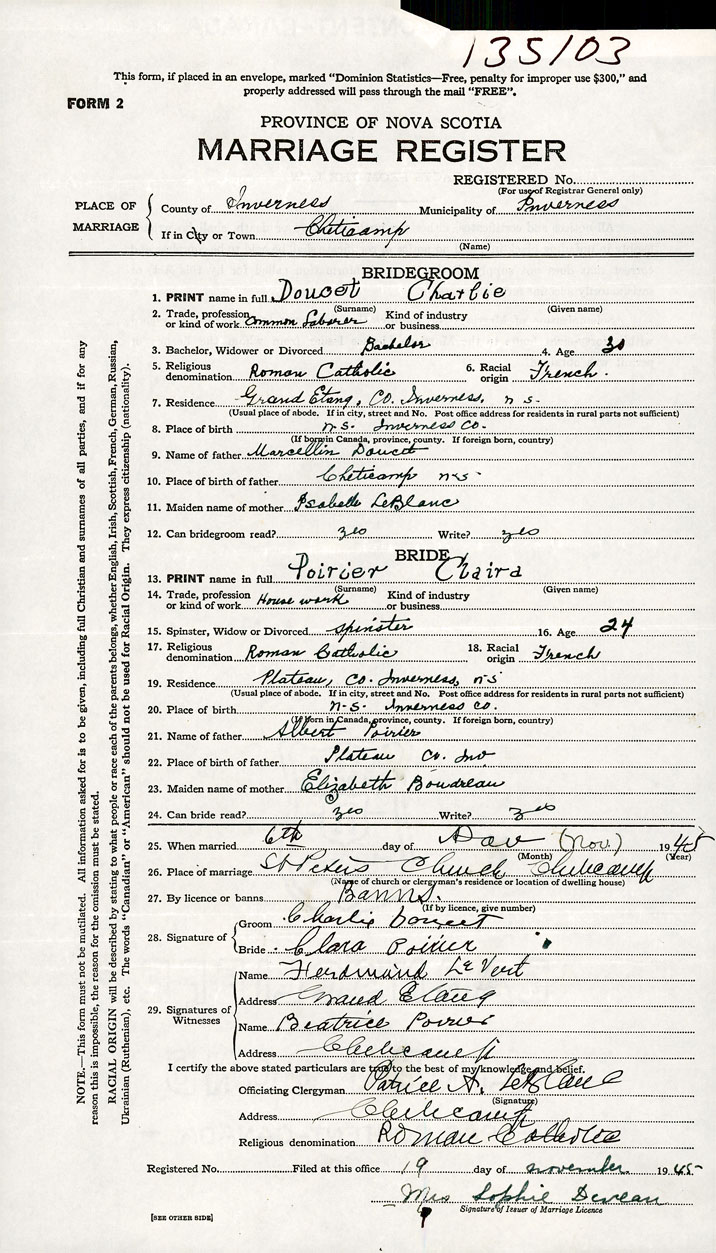 135103
This form, if placed in an envelope, marked "Dominion Statistics—Free, penalty for improper use $300," and
properly addressed will pass through the mail "FREE".
FORM 2
PROVINCE OF NOVA SCOTIA
MARRIAGE REGISTER
REGISTERED No.
(For use of Registrar General only)
PLACE OF MARRIAGE
County of Inverness Municipality of Inverness
If in City or Town Cheticamp
(Name)
BRIDEGROOM
1. PRINT name in full Doucet Charlie
(Surname) (Given name)
2. Trade, profession or kind of work Common Laborer Kind of industry or business
3. Bachelor, Widower or Divorced Bachelor 4. Age 30
5. Religious denomination Roman Catholic 6. Racial origin French.
7. Residence Grand Etang, Co. Inverness, n s.
(Usual place of abode. If in city, street and No. Post office address for residents in rural parts not sufficient)
8. Place of birth n.s. Inverness Co.
(If born in Canada, province, county. If foreign born, country)
9. Name of father Marcellin Doucet
10. Place of birth of father Cheticamp n-s
11. Maiden name of mother Isabelle LeBlanc
12. Can bridegroom read? yes Write? yes
BRIDE
13. PRINT name in full Poirier Claira
(Surname) (Given name)
14. Trade, profession or kind of work House work Kind of industry or business
15. Spinster, Widow or Divorced spinster 16. Age 24
17. Religious denomination Roman Catholic 18. Racial origin French
19. Residence Plateau, Co. Inverness, n-s
(Usual place of abode. If in city, street and No. Post office address for residents in rural parts not sufficient)
20. Place of birth n-s. Inverness co.
(If born in Canada, province, county. If foreign born, country)
21. Name of father Albert Poirier
22. Place of birth of father Plateau Co. Inv
23. Maiden name of mother Elizabeth Boudreau
24. Can bride read? yes Write? yes
25. When married 6th day of (Nov.) 1945
(Month) (Year)
26. Place of marriage St Peters Church Cheticamp
(Name of church or clergyman's residence or location of dwelling house)
27. By licence or banns Banns.
(If by licence, give number)
28. Signature of
Groom Charlie Doucet
Bride Clara Poirier
29. Signatures of Witnesses
Name Ferdinand LeVert
Address Grand Etang
Name Beatrice Poirier
Address Cheticamp
I certify the above stated particulars are true to the best of my knowledge and belief.
Officiating Clergyman Patrice A. LeBlanc
(Signature)
Address Cheticamp
Religious denomination Roman Catholic
Registered No. Filed at this office 19 day of november 1945
Mrs Sophie Deveau
Signature of Issuer of Marriage Licence
[SEE OTHER SIDE]
NOTE.—This form must not be mutilated. All information asked for is to be given, including full Christian and surnames of all parties, and if for any
reason this is impossible, the reason for the omission must be stated.
RACIAL ORIGIN will be described by stating to what people or race each of the parents belongs, whether English, Irish, Scottish, French, German, Russian,
Ukrainian (Ruthenian), etc. The words "Canadian" or "American" should not be used for Racial Origin. They express citizenship (nationality).